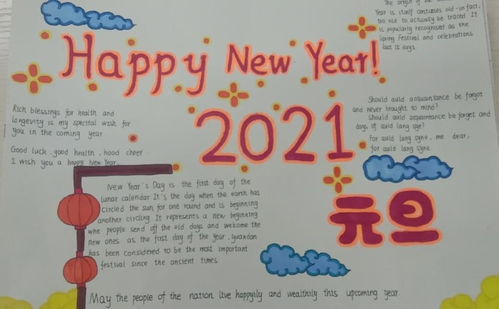 The origin of the
Year is itself centuries old - in fact,
too old to actually be traced It
is popularly recognised as the
spring Festival and celebrations
last 15 days.
Happy New Year!
Rich blessings for health and
longevity is my special wish for
you in the coming year
Good luck, good health, hood cheer.
I wish you a happy New Year.
2021
Should auld acquaintance be forgot
and never brought to mind?
Should auld acquaintance be forget and
days of auld lang syne?
For auld lang syne, me dear,
for auld lang syne
New Year's Day is the first day of the
lunar calendar It's the day when the earth has
circled the sun for one round and is beginning
another circling It represents a new beginning
whe people send off the old days and welcome the
new ones as the first day of the year, yuandan
has been considered to be the most important
festival since the ancient times
元旦
May the people of the nation live happily and wealthily this upcoming year